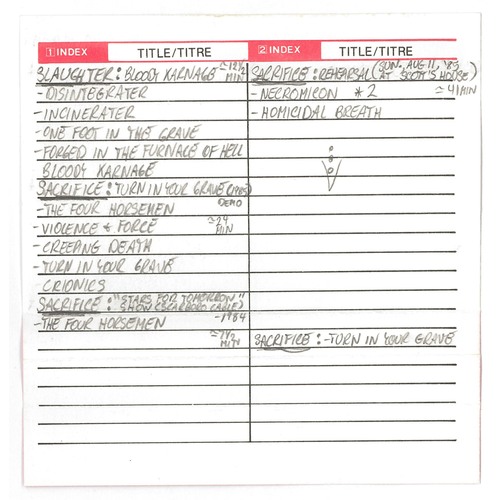 1 INDEX TITLE/TITRE
SLAUGHTER: BLOODY KARNAGE ≃12½ MIN
-DISINTEGRATER
-INCINERATER
-ONE FOOT IN THE GRAVE
-FORGED IN THE FURNACE OF HELL
BLOODY KARNAGE
SACRIFICE: TURN IN YOUR GRAVE (1985) DEMO
-THE FOUR HORSEMEN
-VIOLENCE & FORCE ≃24 MIN
-CREEPING DEATH
-TURN IN YOUR GRAVE
-CRIONICS
SACRIFICE: "STARS FOR TOMORROW"
SHOW (SCARBORO CABLE)
-THE FOUR HORSEMEN -1984
MIN
2 INDEX TITLE/TITRE
SACRIFICE: REHEARSAL (SUN. AUG 11, '85 AT SCOTT'S HOUSE)
-NECROMICON #2 ≃41 MIN
-HOMICIDAL BREATH
SACRIFICE: -TURN IN YOUR GRAVE